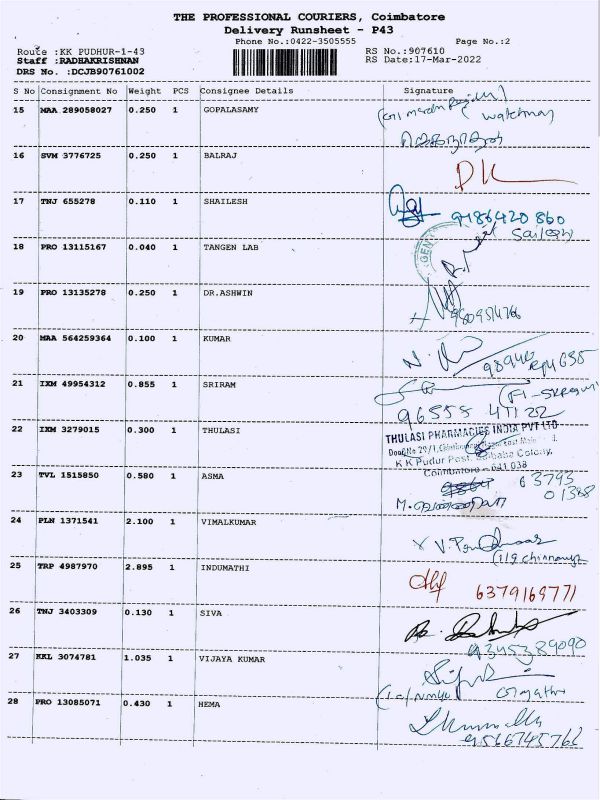 THE PROFESSIONAL COURIERS, Coimbatore
Delivery Runsheet - P43
Phone No.:0422-3505555 Page No.:2
Route :KK PUDHUR-1-43 RS No.:907610
Staff :RADHAKRISHNAN RS Date:17-Mar-2022
DRS No. :DCJB90761002
S No Consignment No Weight PCS Consignee Details Signature
15 MAA 289058027 0.250 1 GOPALASAMY
watchman
16 SVM 3776725 0.250 1 BALRAJ
17 TNJ 655278 0.110 1 SHAILESH
9186420860
18 PRO 13115167 0.040 1 TANGEN LAB
19 PRO 13135278 0.250 1 DR.ASHWIN
20 MAA 564259364 0.100 1 KUMAR
21 IXM 49954312 0.855 1 SRIRAM
22 IXM 3279015 0.300 1 THULASI
THULASI PHARMACIES INDIA PVT LTD
K K Pudur Post, Saibaba Colony,
Coimbatore - 641 038
23 TVL 1515850 0.580 1 ASMA
63793
01388
24 PLN 1371541 2.100 1 VIMALKUMAR
25 TRP 4987970 2.895 1 INDUMATHI
6379169771
26 TNJ 3403309 0.130 1 SIVA
9345389090
27 KKL 3074781 1.035 1 VIJAYA KUMAR
28 PRO 13085071 0.430 1 HEMA
9566745762